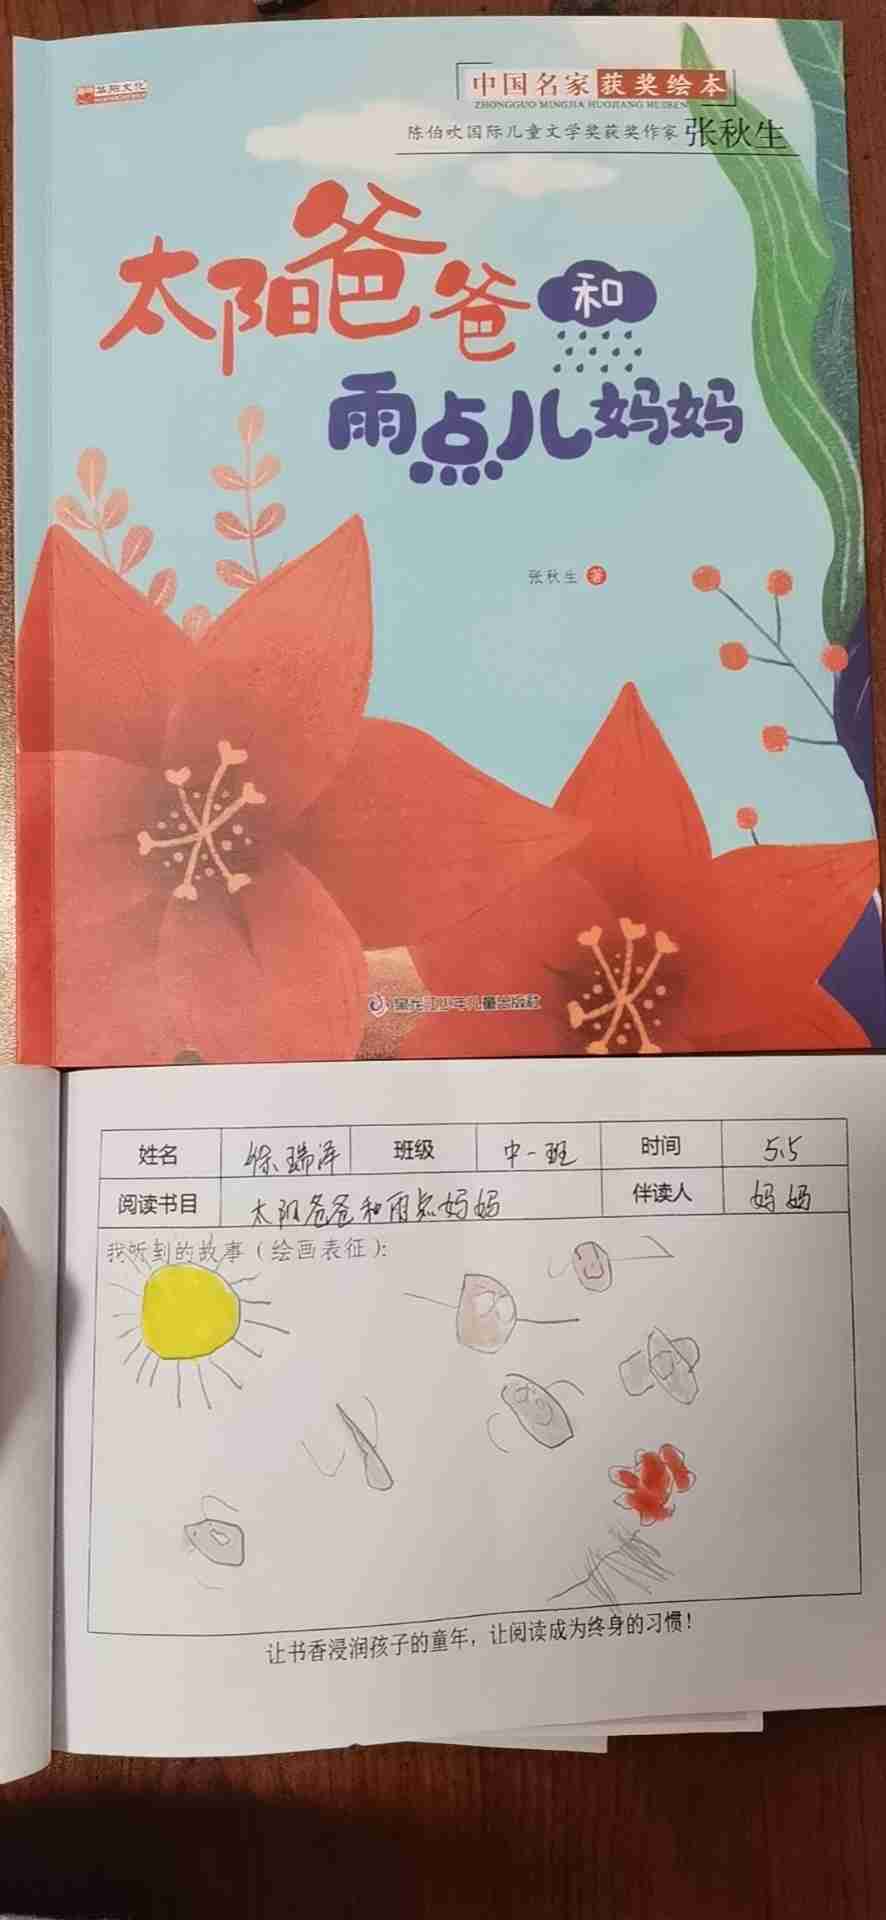 华阳文化
中国名家获奖绘本
ZHONGGUO MINGJIA HUOJIANG HUIBEN
陈伯吹国际儿童文学奖获奖作家 张秋生
太阳爸爸和
雨点儿妈妈
张秋生 著
黑龙江少年儿童出版社
姓名 瑞泽 班级 中一班 时间 5.5
阅读书目 太阳爸爸和雨点妈妈 伴读人 妈妈
我听到的故事（绘画表征）：
让书香浸润孩子的童年，让阅读成为终身的习惯！